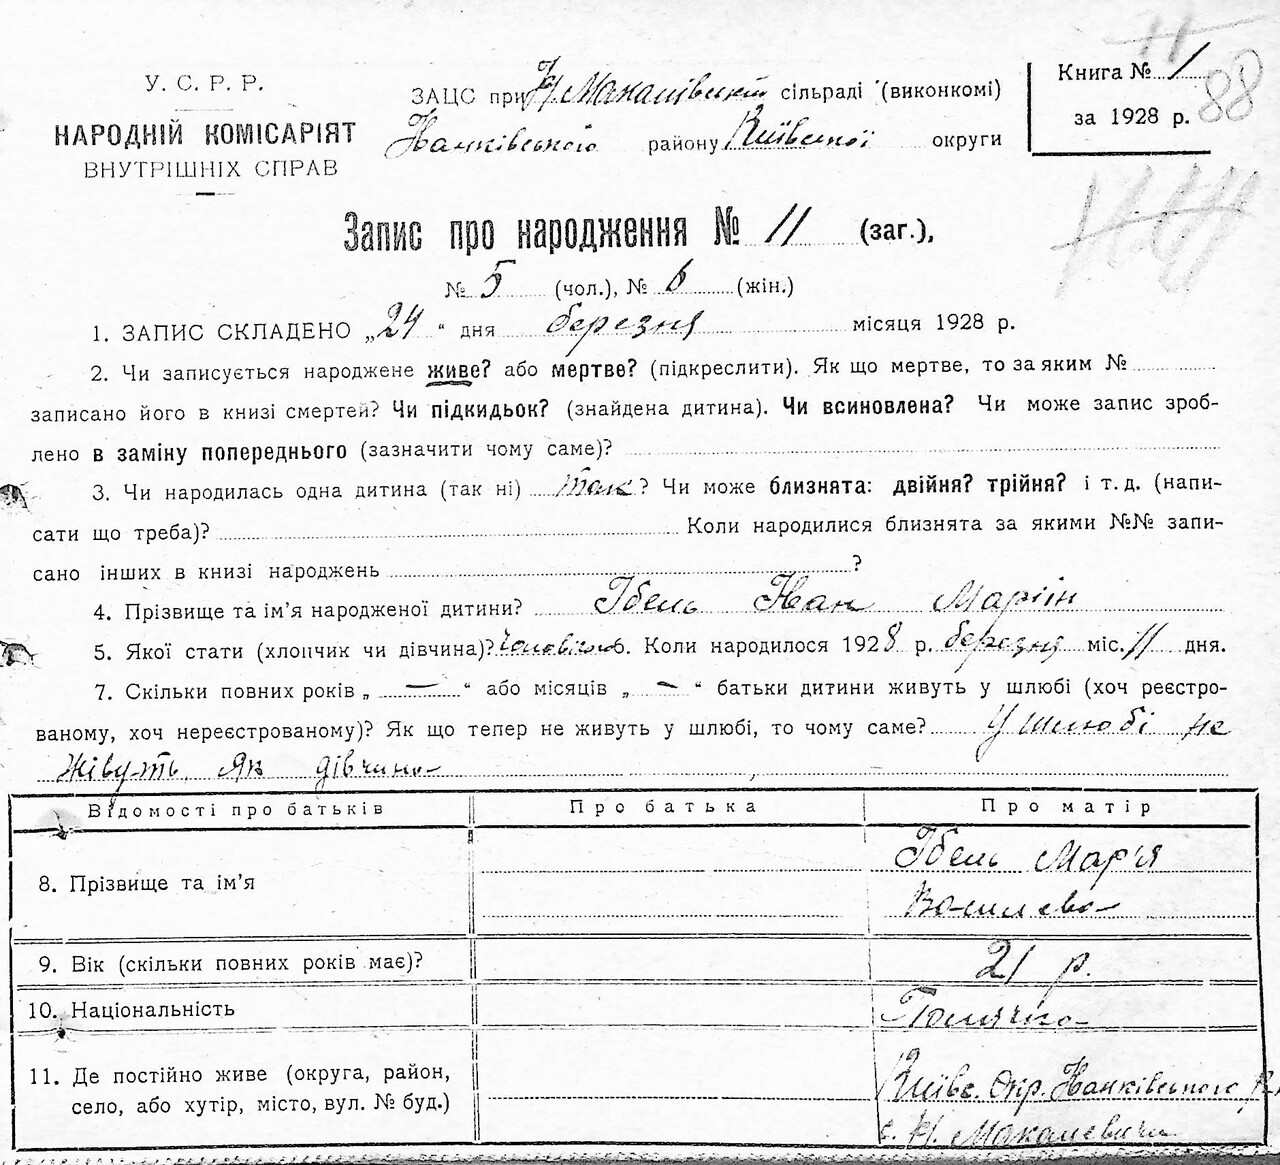 У. С. Р. Р.
НАРОДНІЙ КОМІСАРІЯТ
ВНУТРІШНІХ СПРАВ
ЗАЦС при Н/Макалівській сільраді (виконкомі)
Іванківського району Київської округи
Книга № 1
за 1928 р.
88
Запис про народження № 11 (заг.),
№ 5 (чол.), № 6 (жін.)
1. ЗАПИС СКЛАДЕНО „24“ дня березня місяця 1928 р.
2. Чи записується народжене живе? або мертве? (підкреслити). Як що мертве, то за яким №
записано його в книзі смертей? Чи підкидьок? (знайдена дитина). Чи всиновлена? Чи може запис зроб-
лено в заміну попереднього (зазначити чому саме)?
3. Чи народилась одна дитина (так ні) так? Чи може близнята: двійня? трійня? і т. д. (напи-
сати що треба)? Коли народилися близнята за якими №№ запи-
сано інших в книзі народжень ?
4. Прізвище та ім’я народженої дитини? Ібель Іван Маріїн
5. Якої стати (хлопчик чи дівчина)? 6. Коли народилося 1928 р. березня міс. 11 дня.
7. Скільки повних років „ — “ або місяців „ — “ батьки дитини живуть у шлюбі (хоч реєстро-
ваному, хоч нереєстрованому)? Як що тепер не живуть у шлюбі, то чому саме? У шлюбі не
живуть. Як дівчина
Відомості про батьків Про батька Про матір
8. Прізвище та ім’я Ібель Мар’я
Василева
9. Вік (скільки повних років має)? 21 р.
10. Національність Полячка
11. Де постійно живе (округа, район, Київс. Окр. Іванківського
село, або хутір, місто, вул. № буд.) с. Н/Макалевичи